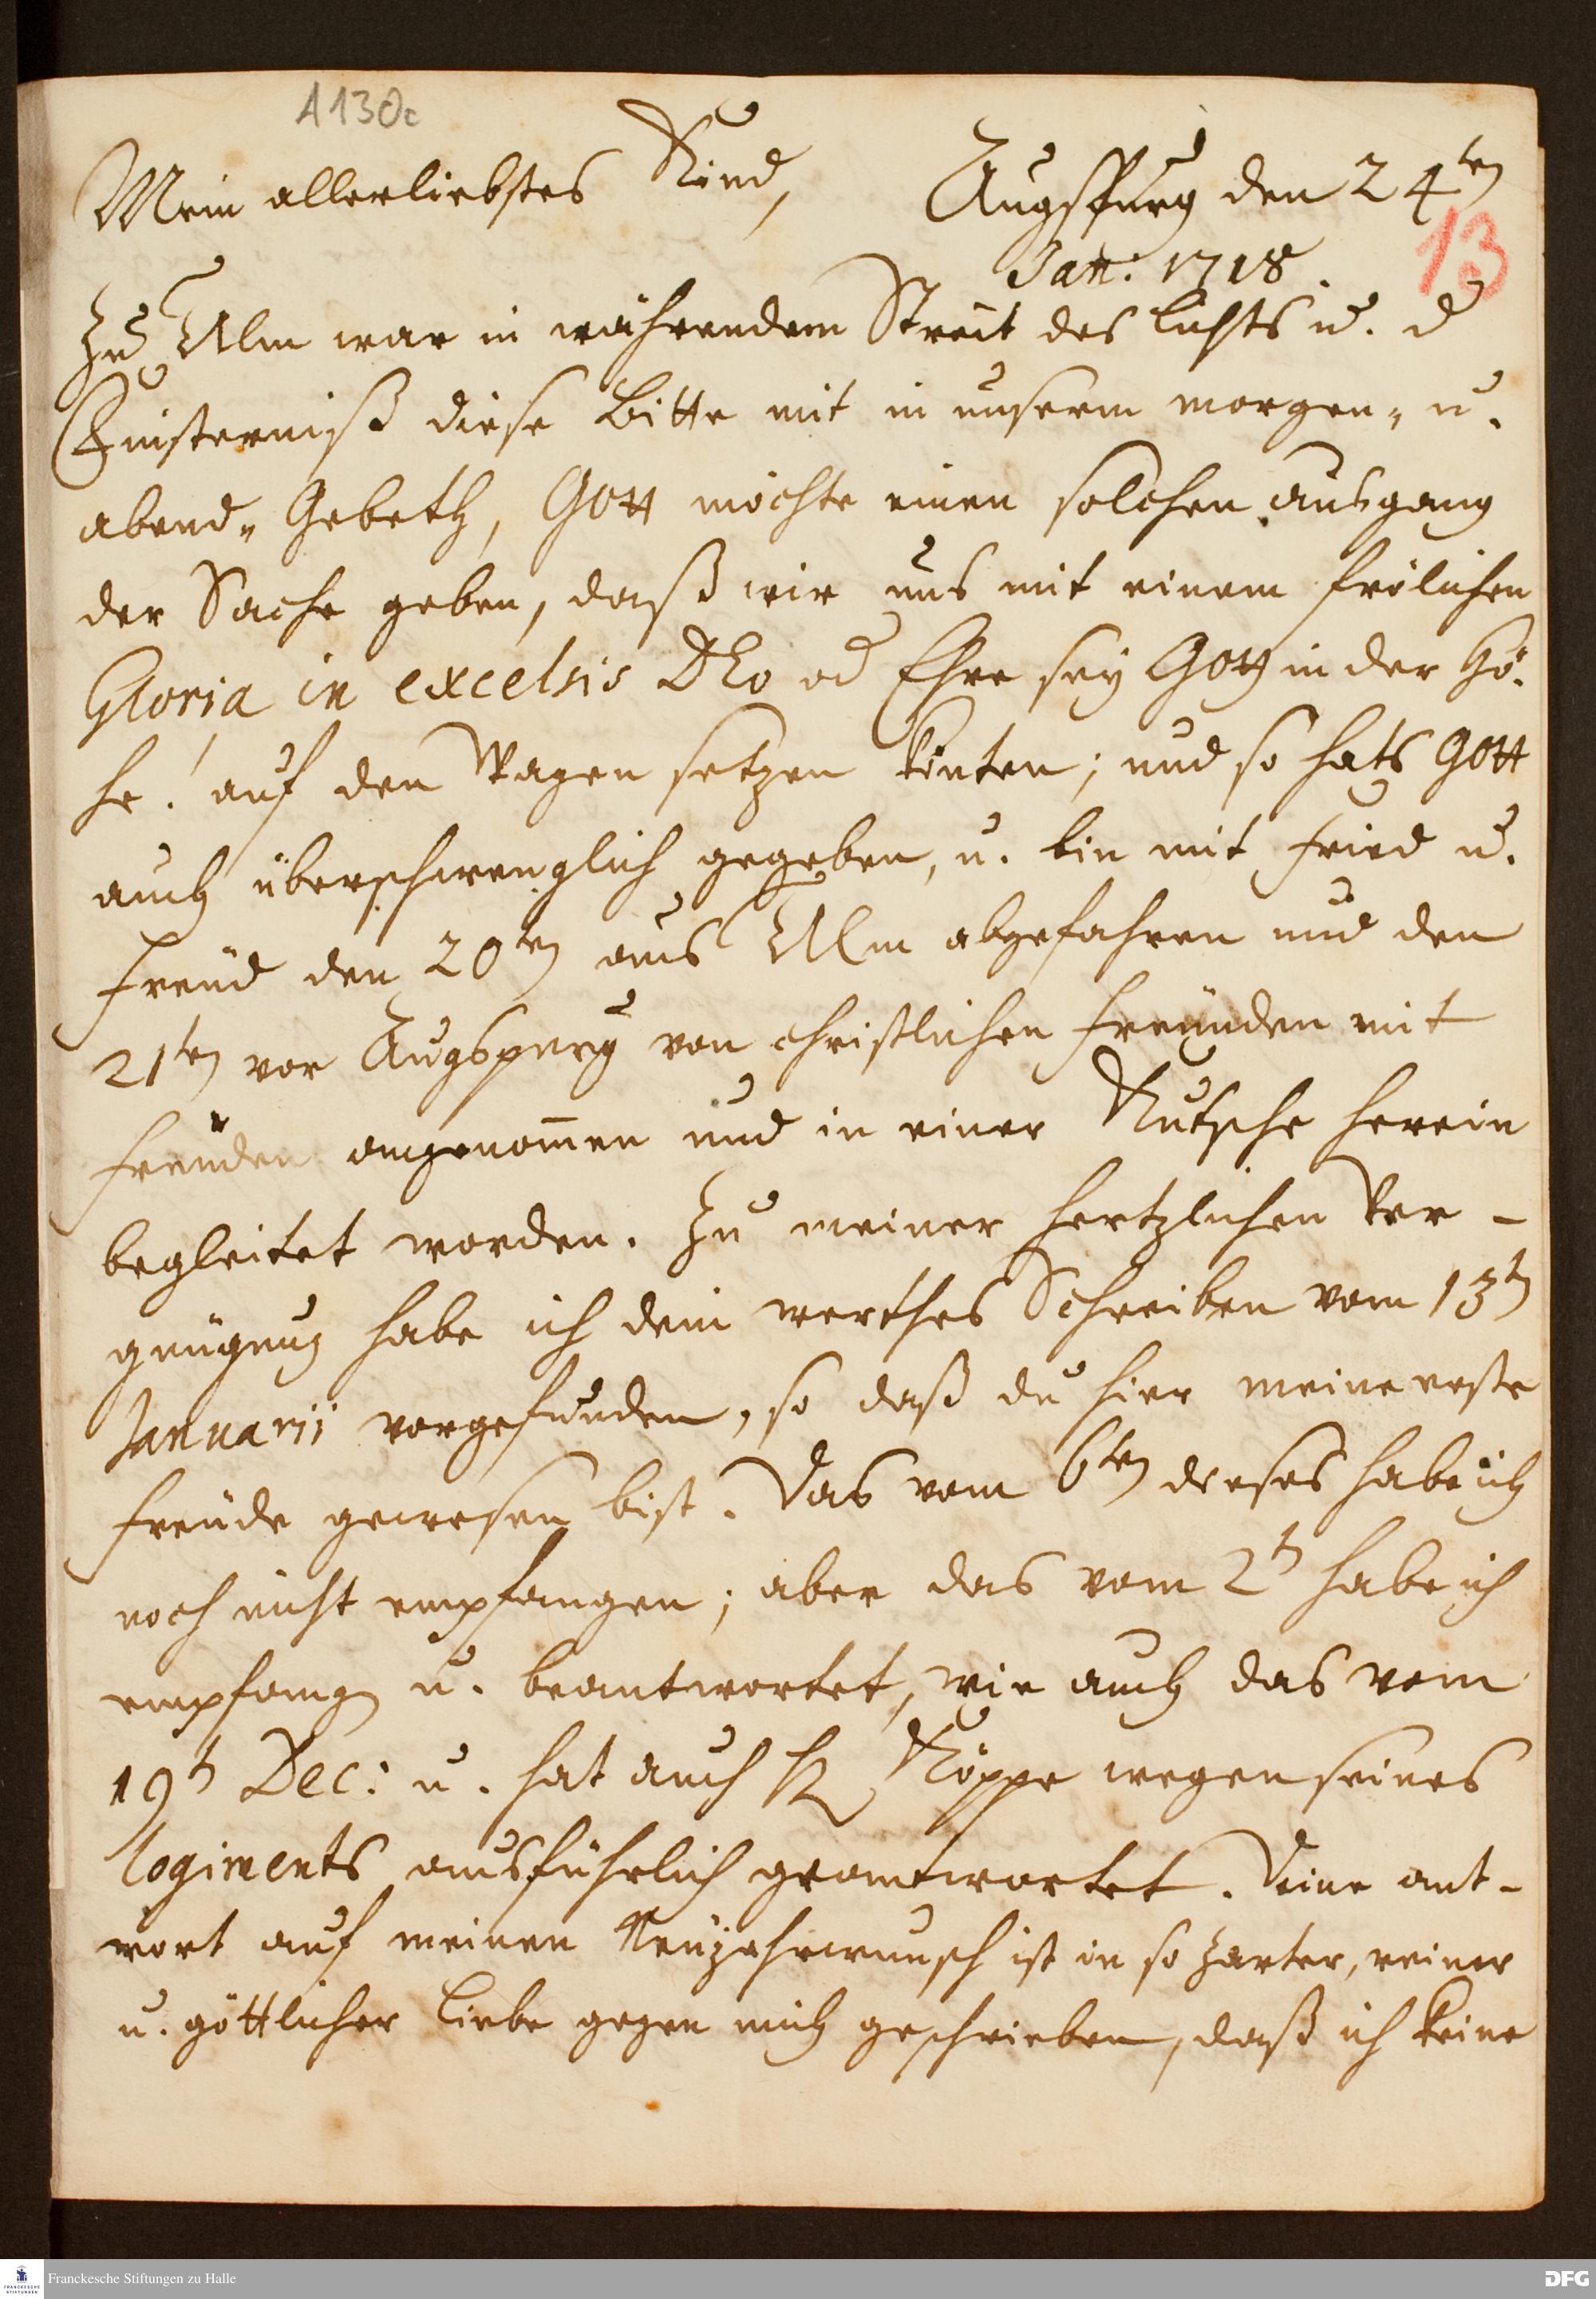 A 130c
Mein allerliebstes Kind,
Augspurg den 24ten
Jan: 1718.
13
Zu Ulm war in währendem Streit des lichts u. d
Finsterniß diese Bitte mit in unserm morgen- u.
abend- Gebeth, Gott möchte einen solchen ausgang
der Sache geben, daß wir uns mit einem frölichen
Gloria in excelsis DEo od Ehre sey Gott in der Hö-
he! auf den Wagen setzen könten; und so hats Gott
auch überschwenglich gegeben, u. bin mit fried u.
freud den 20ten aus Ulm abgefahren und den
21ten vor Augspurg von christlichen freunden mit
freuden angenom̅en und in einer Kutsche herein
begleitet worden. Zu meiner hertzlichen Ver-
gnügung habe ich dein werthes Schreiben vom 13t
Januarii vorgefunden, so daß du hier meine erste
freude gewesen bist. Das vom 6ten dieses habe ich
noch nicht empfangen; aber das vom 2t habe ich
empfang u. beantwortet, wie auch das vom
19t Dec: u. hat auch H Köppe wegen seines
logiments ausführlich geantwortet. Deine ant-
wort auf meinen Neujahrwunsch ist in so zarter, reiner
u. göttlicher liebe gegen mich geschrieben, daß ich keine
Franckesche Stiftungen zu Halle
FRANCKESCHE STIFTUNGEN
DFG